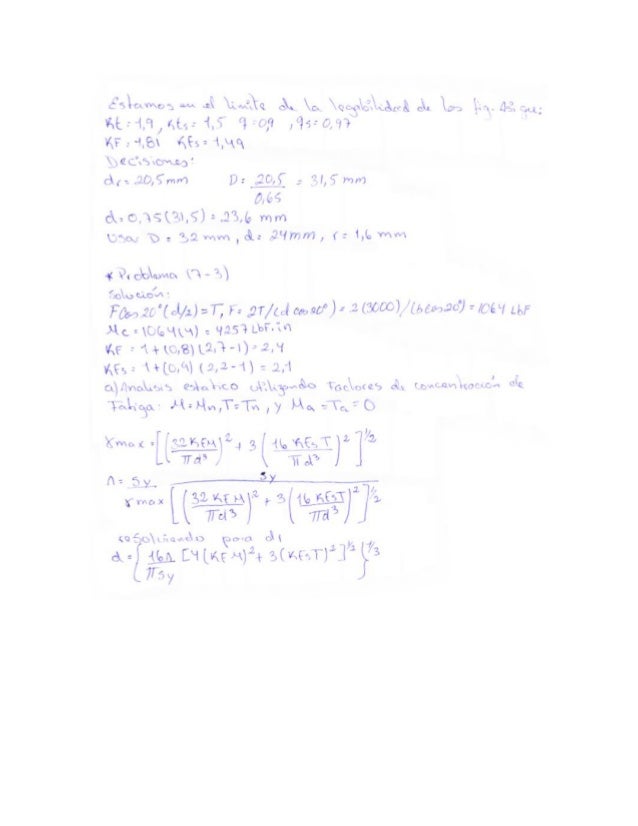 Estamos en el limite de la legibilidad de las fig. Asi que:
Kt = 1,9, Kts = 1,5 q = 0,9, qs = 0,97
KF = 1,81 KFs = 1,49
Decisiones:
dr = 20,5 mm D = 20,5/0,65 = 31,5 mm
d = 0,75(31,5) = 23,6 mm
Usar D = 32 mm, d = 24mm, r = 1,6 mm
* Problema (7-3)
Solución:
F Cos 20° (d/2) = T, F = 2T/(d cos 20°) = 2(3000)/(6 cos 20°) = 1064 LbF
Mc = 1064(4) = 4257 LbF.in
KF = 1 + (0,8)(2,7-1) = 2,4
KFs = 1 + (0,9)(2,2-1) = 2,1
a) Analisis estatico utilizando Factores de concentración de
Fatiga: M = Mn, T = Tn, y Ma = Ta = 0
γmax = [(32 KFM/πd³)² + 3 (16 KFsT/πd³)²]^½
n = Sy/γmax Sy/[(32 KFM/πd³)² + 3 (16 KFsT/πd³)²]^½
resolviendo para d:
d = {16n/πSy [4(KFM)² + 3(KFsT)²]^½}^⅓